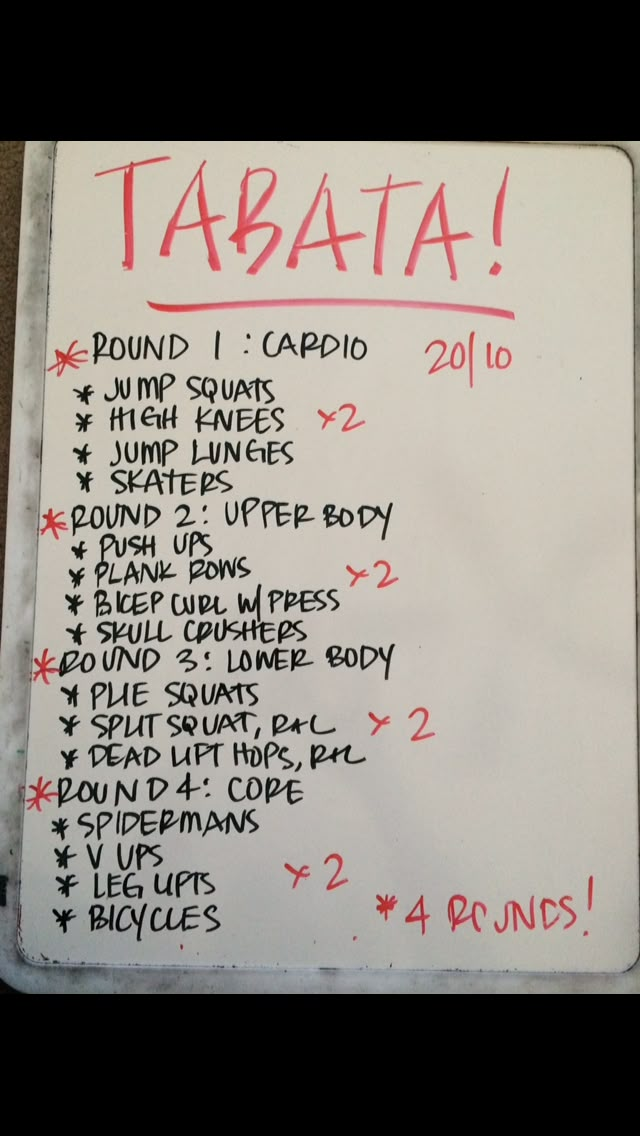 TABATA!
* ROUND 1 : CARDIO 20/10
* JUMP SQUATS
* HIGH KNEES x2
* JUMP LUNGES
* SKATERS
* ROUND 2: UPPER BODY
* PUSH UPS
* PLANK ROWS x2
* BICEP CURL W/ PRESS
* SKULL CRUSHERS
* ROUND 3: LOWER BODY
* PLIE SQUATS
* SPLIT SQUAT, R+L x2
* DEAD LIFT HOPS, R+L
* ROUND 4: CORE
* SPIDERMANS
* V UPS
* LEG LIFTS x2
* BICYCLES * 4 ROUNDS!